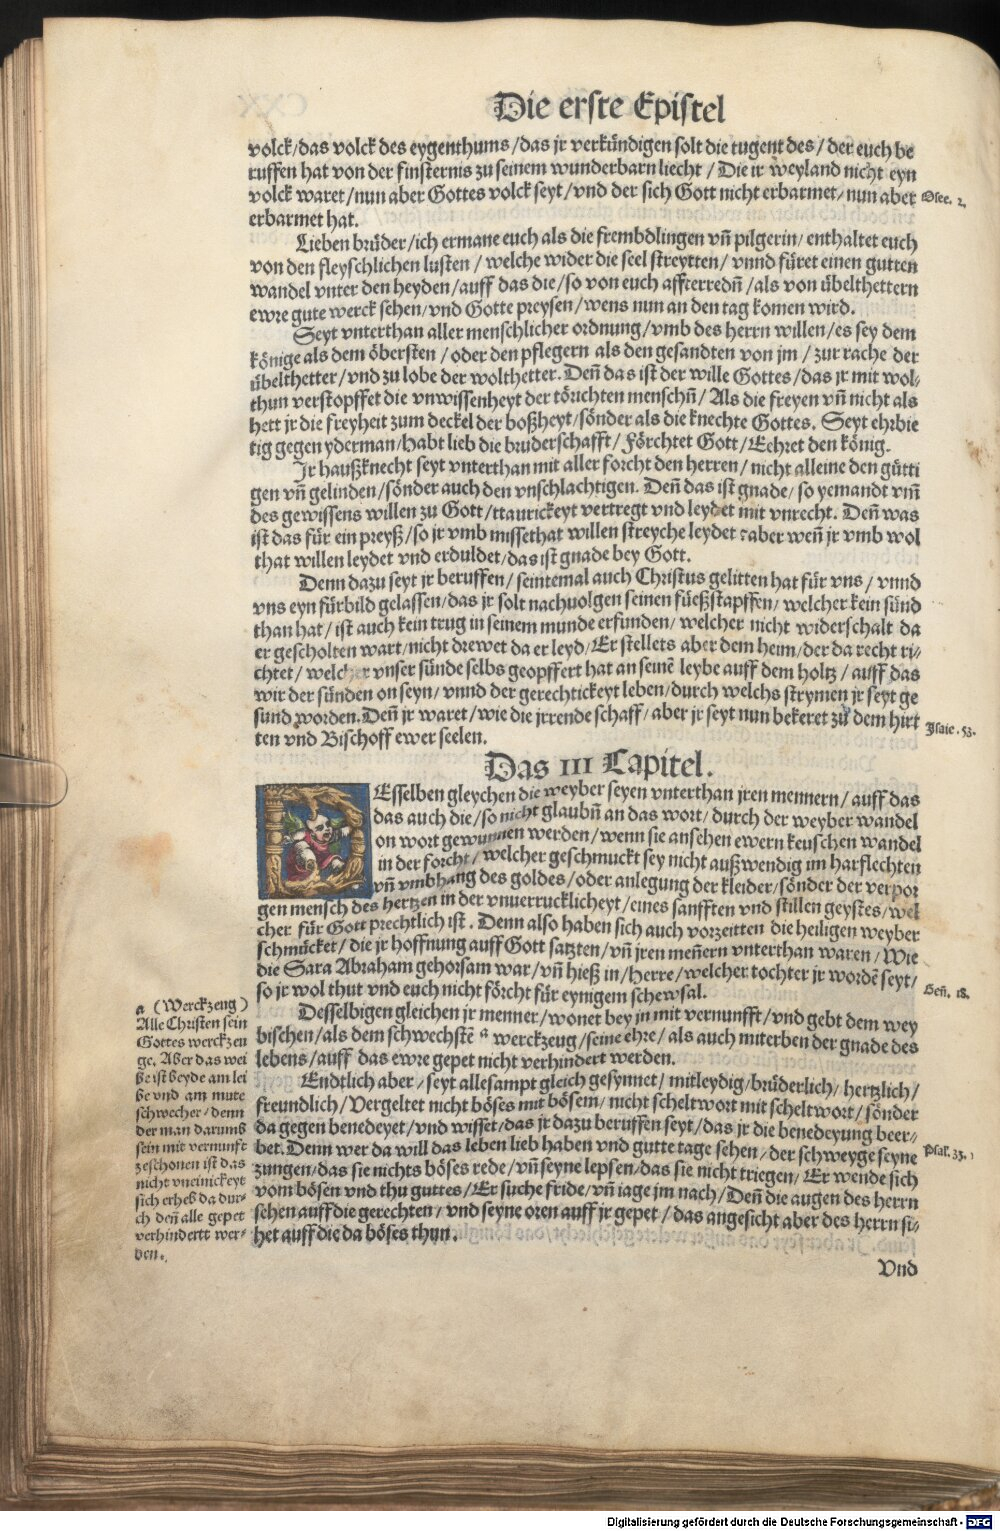 Die erste Epistel
volck/das volck des eygenthums/das jr verkündigen solt die tugent des/der euch be
ruffen hat von der finsternis zu seinem wunderbarn liecht/Die ir weyland nicht eyn
volck waret/nun aber Gottes volck seyt/vnd der sich Gott nicht erbarmet/nun aber
Osee. 2.
erbarmet hat.
Lieben brüder/ich ermane euch als die frembdlingen vñ pilgerin/enthaltet euch
von den fleyschlichen lusten/welche wider die seel streytten/vnnd füret einen gutten
wandel vnter den heyden/auff das die/so von euch affterredñ/als von übelthettern
ewre gute werck sehen/vnd Gotte preysen/wens nun an den tag komen wird.
Seyt vnterthan aller menschlicher ordnung/vmb des herrn willen/es sey dem
könige als dem öbersten/oder den pflegern als den gesandten von jm/zur rache der
übelthetter/vnd zu lobe der wolthetter. Deñ das ist der wille Gottes/das jr mit wol-
thun verstopffet die vnwissenheyt der törichten menschñ/Als die freyen vñ nicht als
hett jr die freyheit zum deckel der boßheyt/sönder als die knechte Gottes. Seyt ehrbie
tig gegen yderman/Habt lieb die bruderschafft/Förchtet Gott/Eehret den könig.
Jr haußknecht seyt vnterthan mit aller forcht den herren/nicht alleine den gütti
gen vñ gelinden/sönder auch den vnschlachtigen. Deñ das ist gnade/so yemandt vm̃
des gewissens willen zu Gott/ttaurickeyt vertregt vnd leydet mit vnrecht. Deñ was
ist das für ein preyß/so jr vmb missethat willen streyche leydet? aber weñ jr vmb wol
that willen leydet vnd erduldet/das ist gnade bey Gott.
Denn dazu seyt jr beruffen/seintemal auch Christus gelitten hat für vns/vnnd
vns eyn fürbild gelassen/das jr solt nachuolgen seinen füeßstapffen/welcher kein sünd
than hat/ist auch kein trug in seinem munde erfunden/welcher nicht widerschalt da
er gescholten wart/nicht drewet da er leyd/Er stellets aber dem heim/der da recht ri-
chtet/welcher vnser sünde selbs geopffert hat an seinē leybe auff dem holtz/auff das
wir der sünden on seyn/vnnd der gerechtickeyt leben/durch welchs strymen jr seyt ge
sund worden. Deñ jr waret/wie die jrrende schaff/aber jr seyt nun bekeret zů dem hirt
Jsaie. 53.
ten vnd Bischoff ewer seelen.
Das III Capitel.
DEsselben gleychen die weyber seyen vnterthan jren mennern/auff das
das auch die/so nicht glaubñ an das wort/durch der weyber wandel
on wort gewunnen werden/wenn sie ansehen ewern keuschen wandel
in der forcht/welcher geschmuckt sey nicht außwendig im harflechten
vñ vmbhang des goldes/oder anlegung der kleider/sönder der verpor
gen mensch des hertzen in der vnuerrucklicheyt/eines sanfften vnd stillen geystes/wel
cher für Gott prechtlich ist. Denn also haben sich auch vorzeitten die heiligen weyber
schmücket/die jr hoffnung auff Gott satzten/vñ jren meñern vnterthan waren/Wie
die Sara Abraham gehorsam war/vñ hieß in/Herre/welcher tochter jr wordē seyt/
Geñ. 18.
so jr wol thut vnd euch nicht förcht für eynigem schewsal.
Desselbigen gleichen jr menner/wonet bey jn mit vernunfft/vnd gebt dem wey
bischen/als dem schwechstē a werckzeug/seine ehre/als auch miterben der gnade des
lebens/auff das ewre gepet nicht verhindert werden.
Endtlich aber/seyt allesampt gleich gesynnet/mitleydig/brüderlich/hertzlich/
freundlich/Vergeltet nicht böses mit bösem/nicht scheltwort mit scheltwort/sönder
da gegen benedeyet/vnd wisset/das jr dazu beruffen seyt/das jr die benedeyung beer-
bet. Denn wer da will das leben lieb haben vnd gutte tage sehen/der schweyge seyne
Psal. 33.
zungen/das sie nichts böses rede/vñ seyne lepsen/das sie nicht triegen/Er wende sich
vom bösen vnd thu guttes/Er suche fride/vñ iage jm nach/Deñ die augen des herrn
sehen auff die gerechten/vnd seyne oren auff jr gepet/das angesicht aber des herrn si-
het auff die da böses thun.
Vnd
a (Werckzeug)
Alle Christen sein
Gottes werckzeu
ge. Aber das wei
be ist beyde am lei
be vnd am mute
schwecher/denn
der man darumb
sein mit vernunft
zeschonen ist das
nicht vneinickeyt
sich erheb da dur-
ch deñ alle gepet
verhindertt wer-
den.
Digitalisierung gefördert durch die Deutsche Forschungsgemeinschaft - DFG